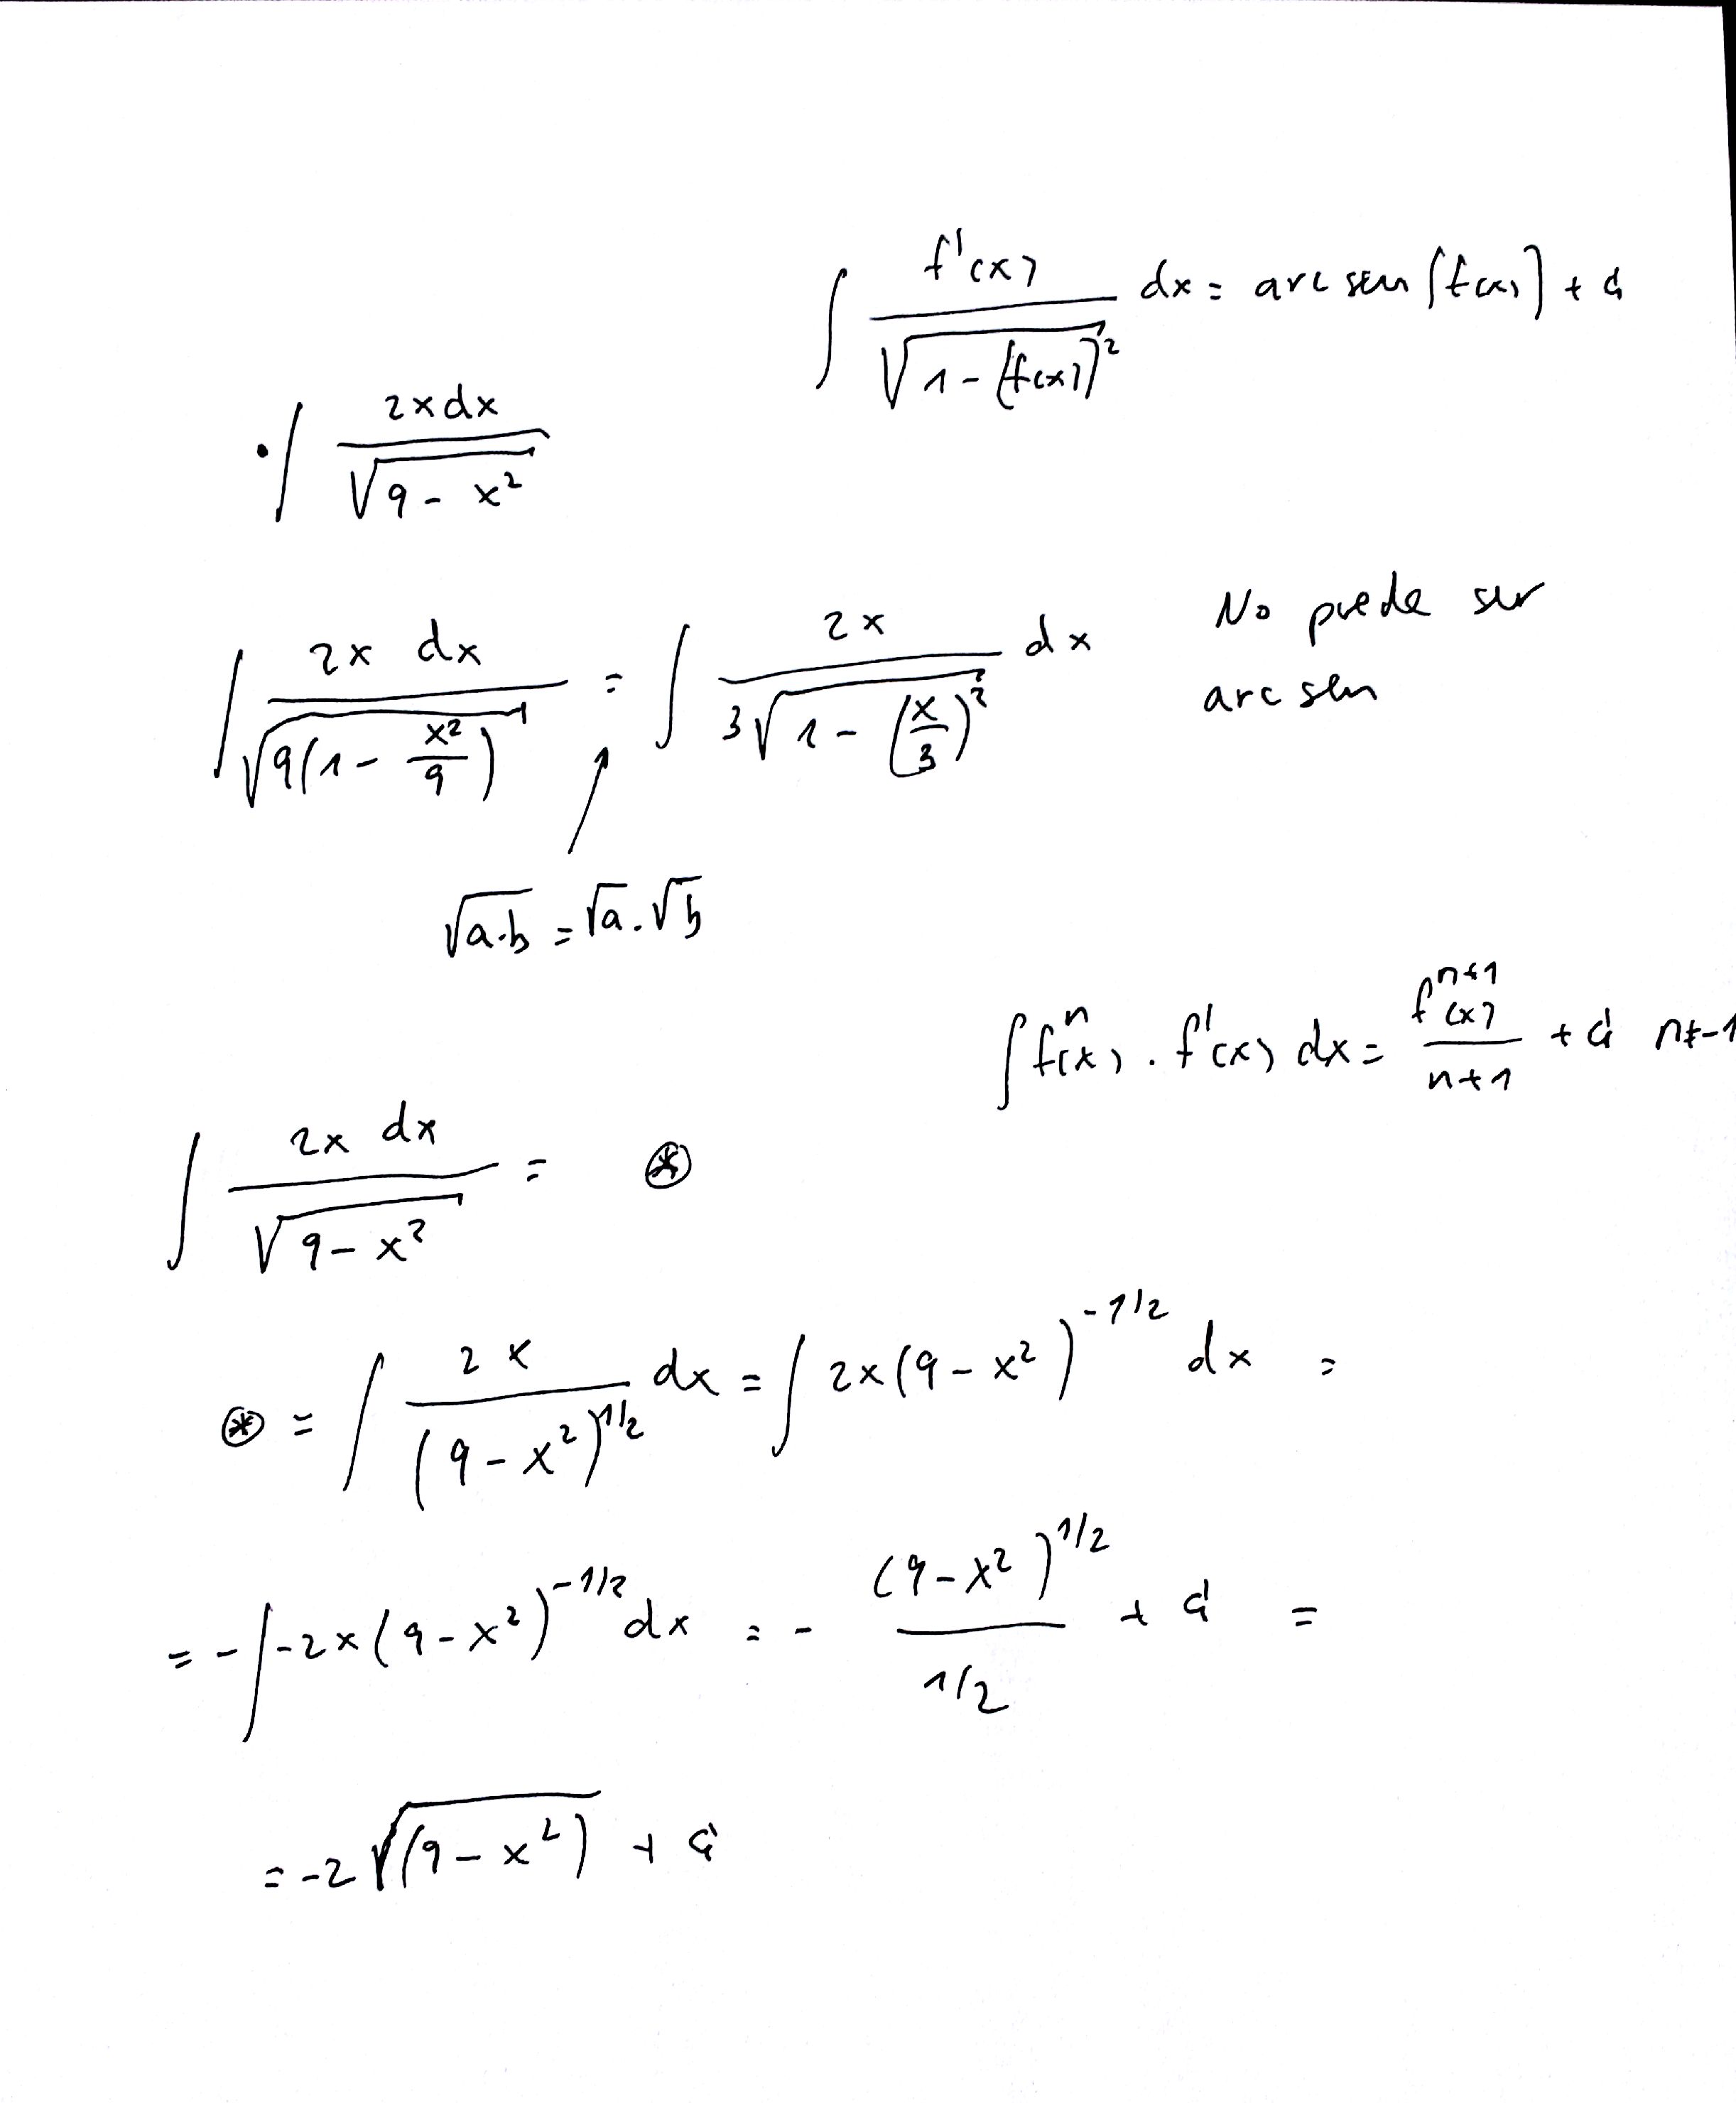 ∫ f'(x) / √(1 - [f(x)]²) dx = arc sen [f(x)] + C
· ∫ 2x dx / √(9 - x²)
∫ 2x dx / √(9(1 - x²/9)) = ∫ 2x / (3√(1 - (x/3)²)) dx
No puede ser
arc sen
√(a·b) = √a · √b
∫ fⁿ(x) · f'(x) dx = fⁿ⁺¹(x) / (n+1) + C n≠-1
∫ 2x dx / √(9 - x²) = ⊛
⊛ = ∫ 2x / (9 - x²)^(1/2) dx = ∫ 2x (9 - x²)^(-1/2) dx =
= - ∫ -2x (9 - x²)^(-1/2) dx = - (9 - x²)^(1/2) / (1/2) + C =
= -2 √((9 - x²)) + C